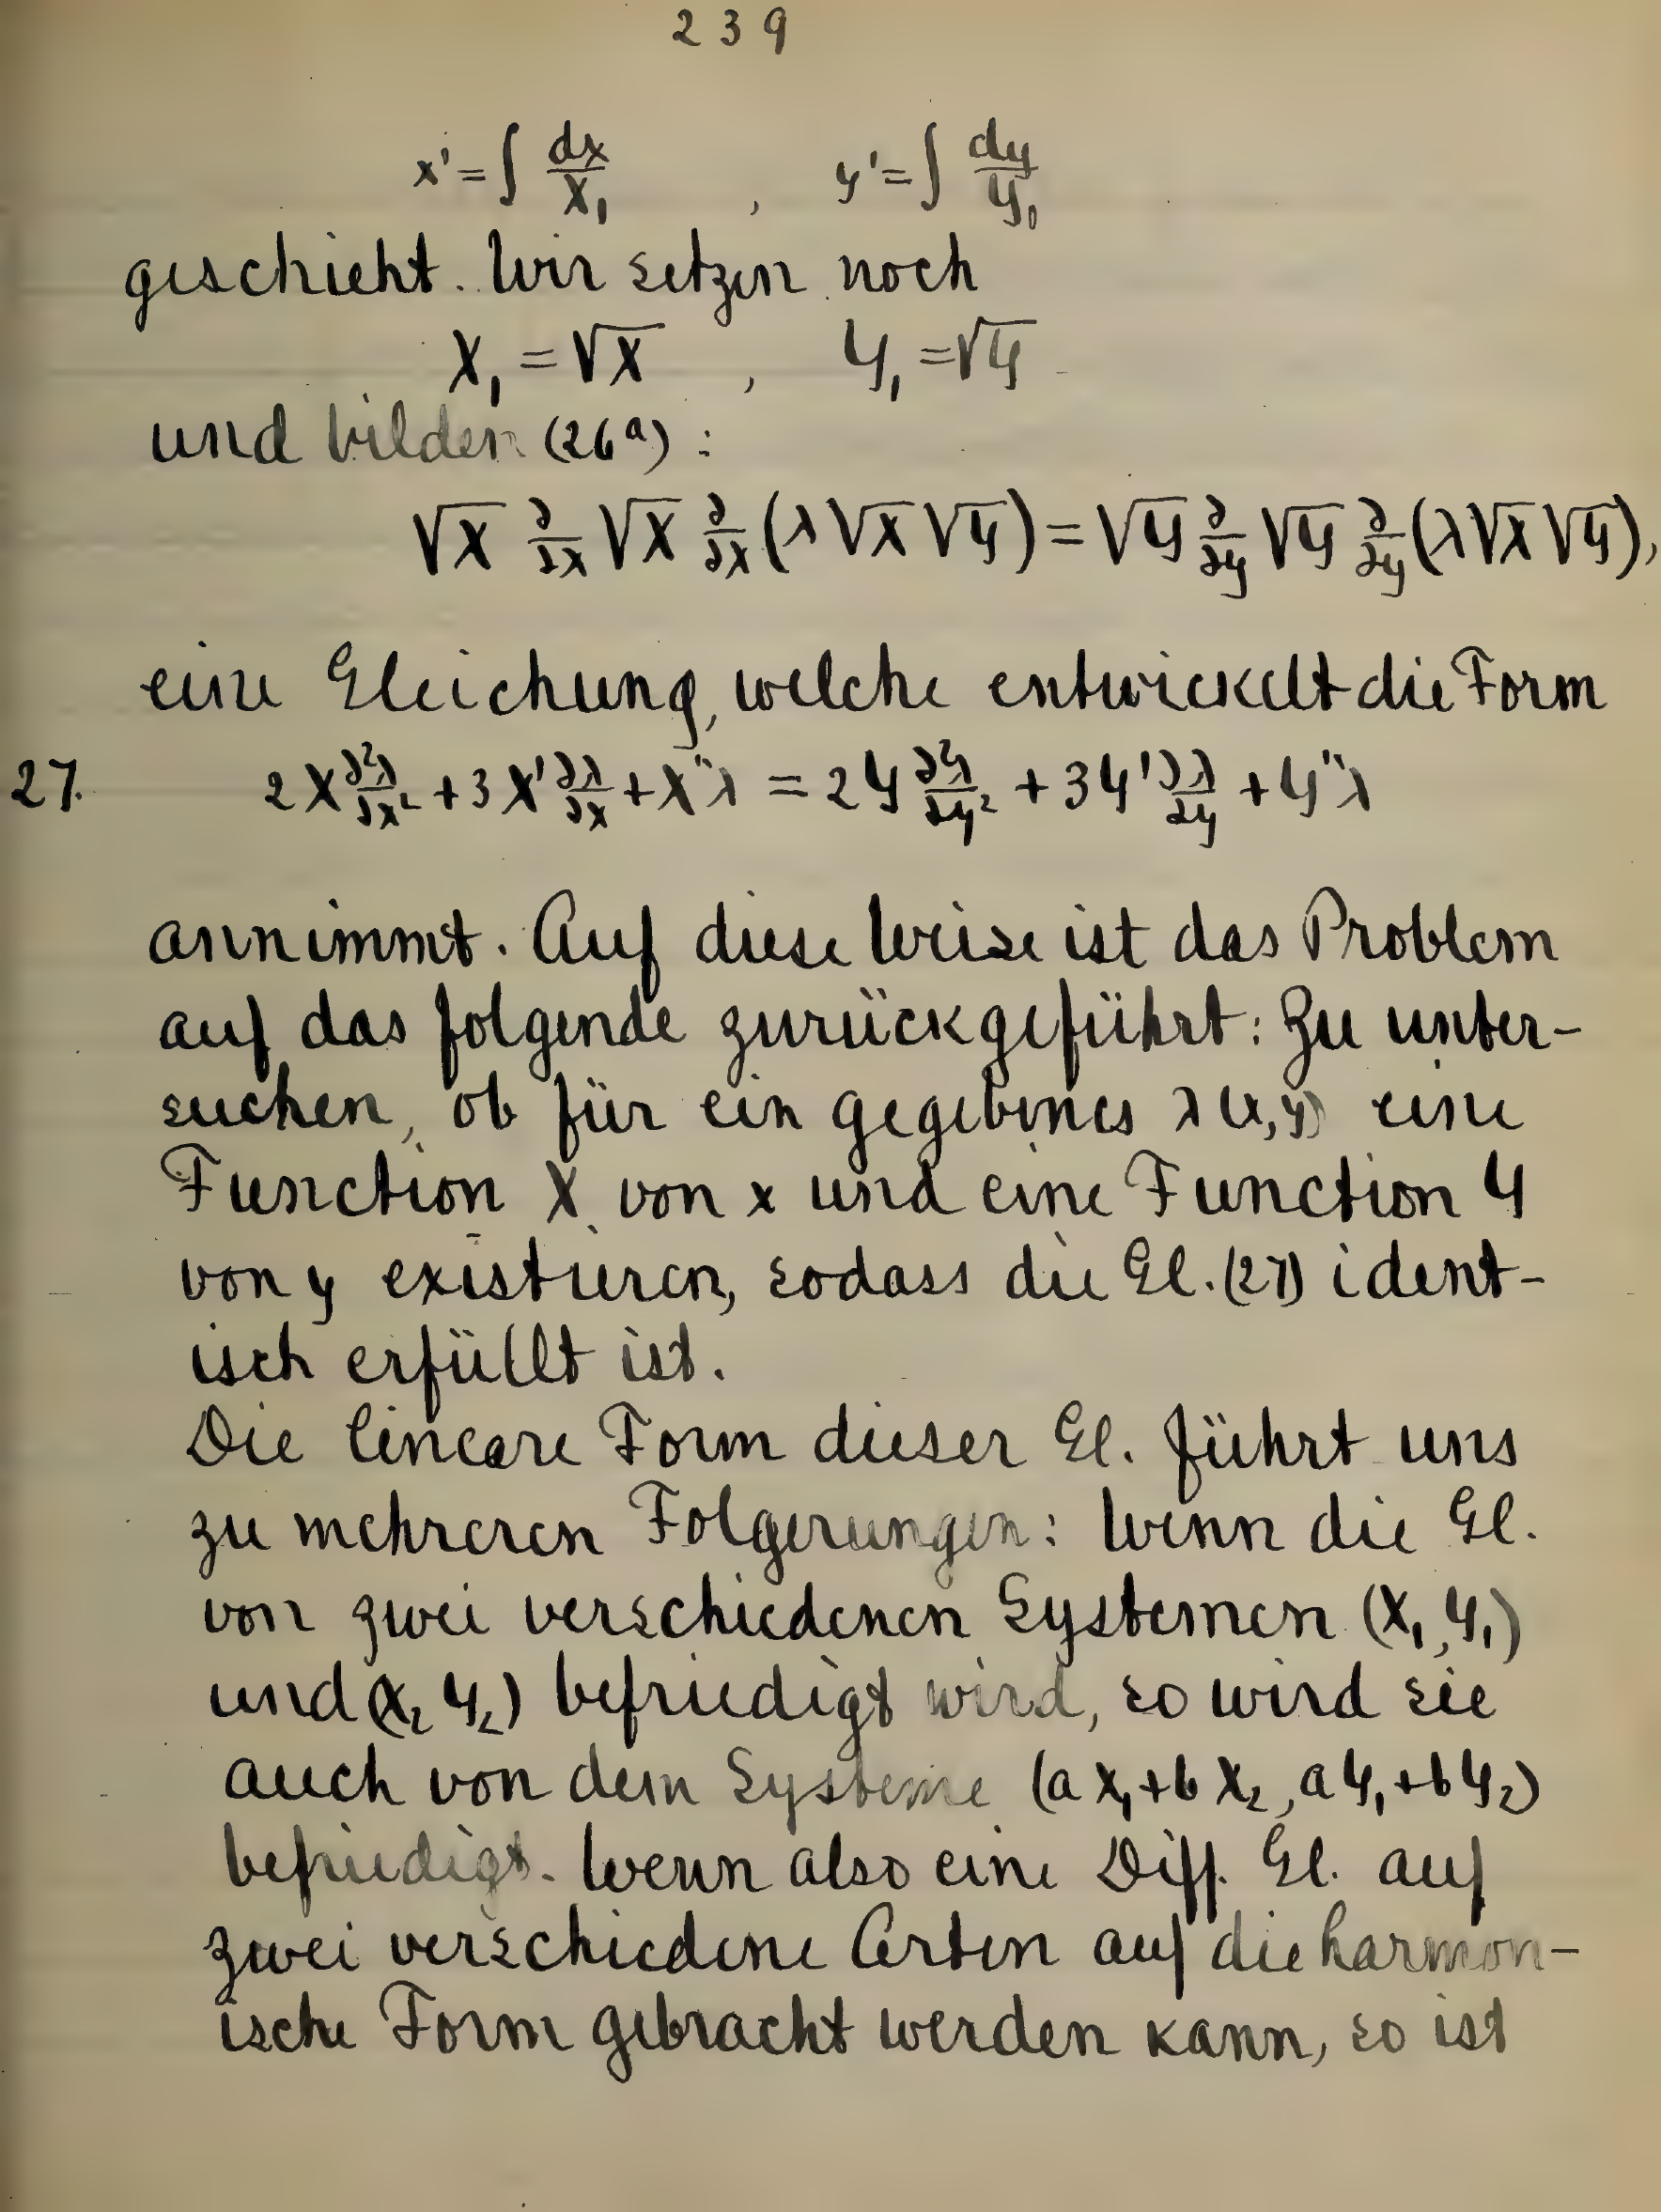 239
x' = ∫ dx/X₁ , y' = ∫ dy/Y₁
geschieht. Wir setzen noch
X₁ = √X , Y₁ = √Y
und bilden (26ᵃ) :
√X ∂/∂x √X ∂/∂x (λ √X √Y) = √Y ∂/∂y √Y ∂/∂y (λ √X √Y),
eine Gleichung, welche entwickelt die Form
27. 2X ∂²λ/∂x² + 3X' ∂λ/∂x + X''λ = 2Y ∂²λ/∂y² + 3Y' ∂λ/∂y + Y''λ
annimmt. Auf diese Weise ist das Problem
auf das folgende zurückgeführt: Zu unter-
suchen, ob für ein gegebenes λ(x,y) eine
Function X von x und eine Function Y
von y existieren, sodass die Gl. (27) ident-
isch erfüllt ist.
Die lineare Form dieser Gl. führt uns
zu mehreren Folgerungen: Wenn die Gl.
von zwei verschiedenen Systemen (X₁, Y₁)
und (X₂ Y₂) befriedigt wird, so wird sie
auch von dem Systeme (aX₁+bX₂, aY₁+bY₂)
befriedigt. Wenn also eine Diff. Gl. auf
zwei verschiedene Arten auf die harmon-
ische Form gebracht werden kann, so ist